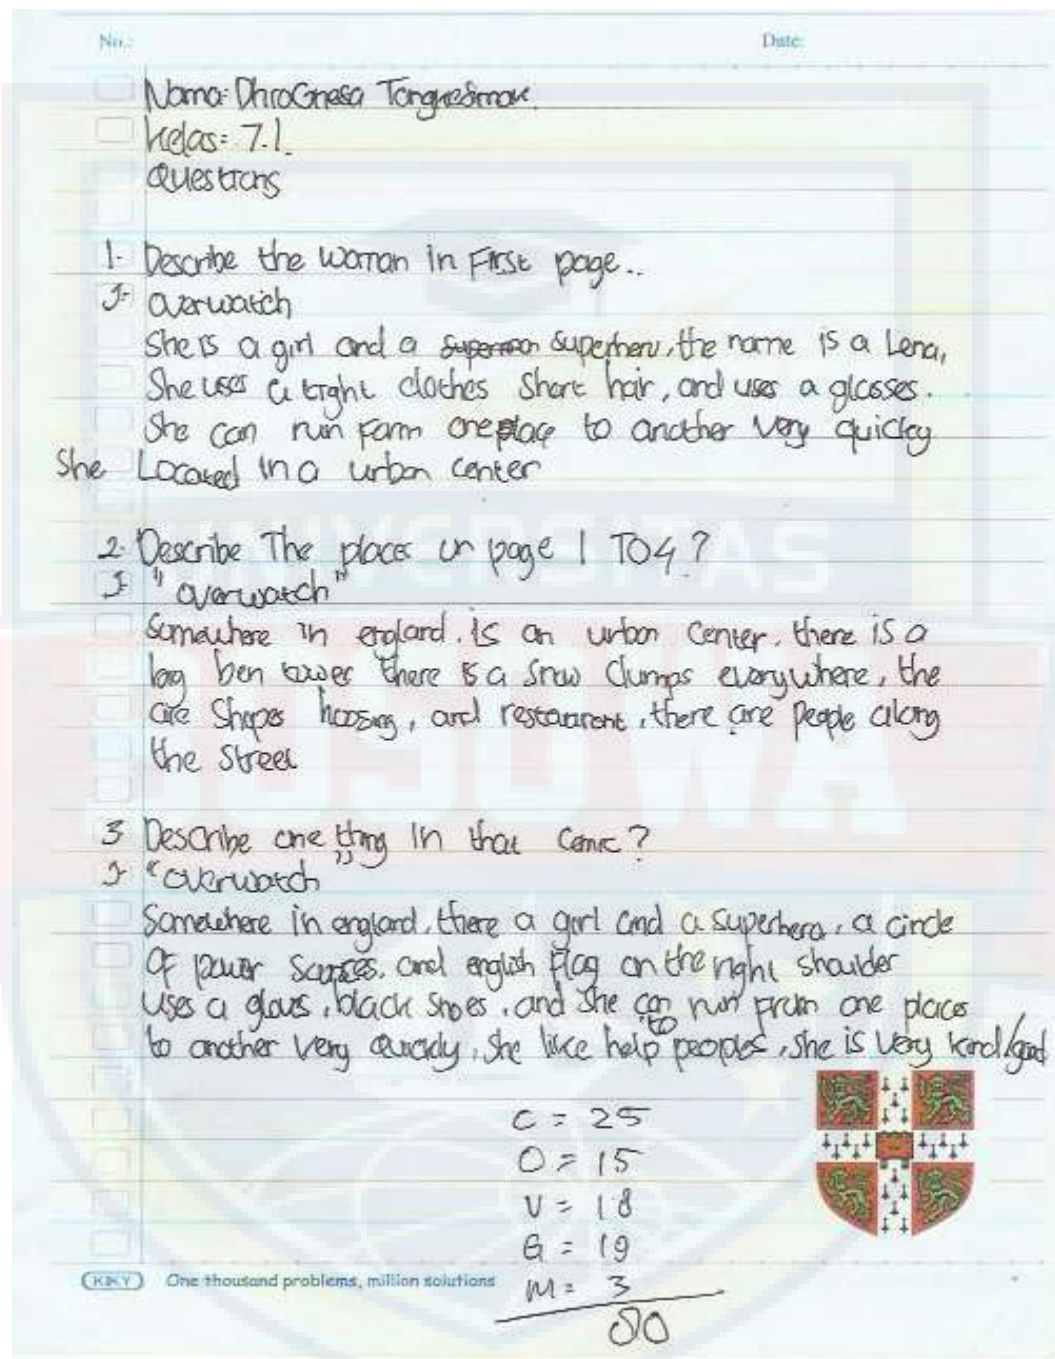 No.: Date:
Nama: DhroGnesa
Kelas: 7.1.
Questions
1. Describe the woman in First page..
J- overwatch
She is a girl and a superhero, the name is a Lena,
She uses a tight clothes short hair, and uses a glasses.
She can run form one place to another very quickly
She Located in a urban center
2. Describe The places in page 1 TO 4?
J- "overwatch"
Somewhere in england. is an urban center. there is a
big ben tower there is a snow clumps everywhere, the
are Shopes housing, and restaurant, there are people along
the street
3 Describe one thing in that comic?
J- "overwatch"
Somewhere in england, there a girl and a superhero, a circle
Of power and english flag on the right shoulder
uses a glows, black shoes, and she can run from one places
to another very quickly, she like to help peoples, she is very kind/good
C = 25
O = 15
V = 18
G = 19
M = 3
80
KIKY One thousand problems, million solutions
UNIVERSITAS
BOSOWA